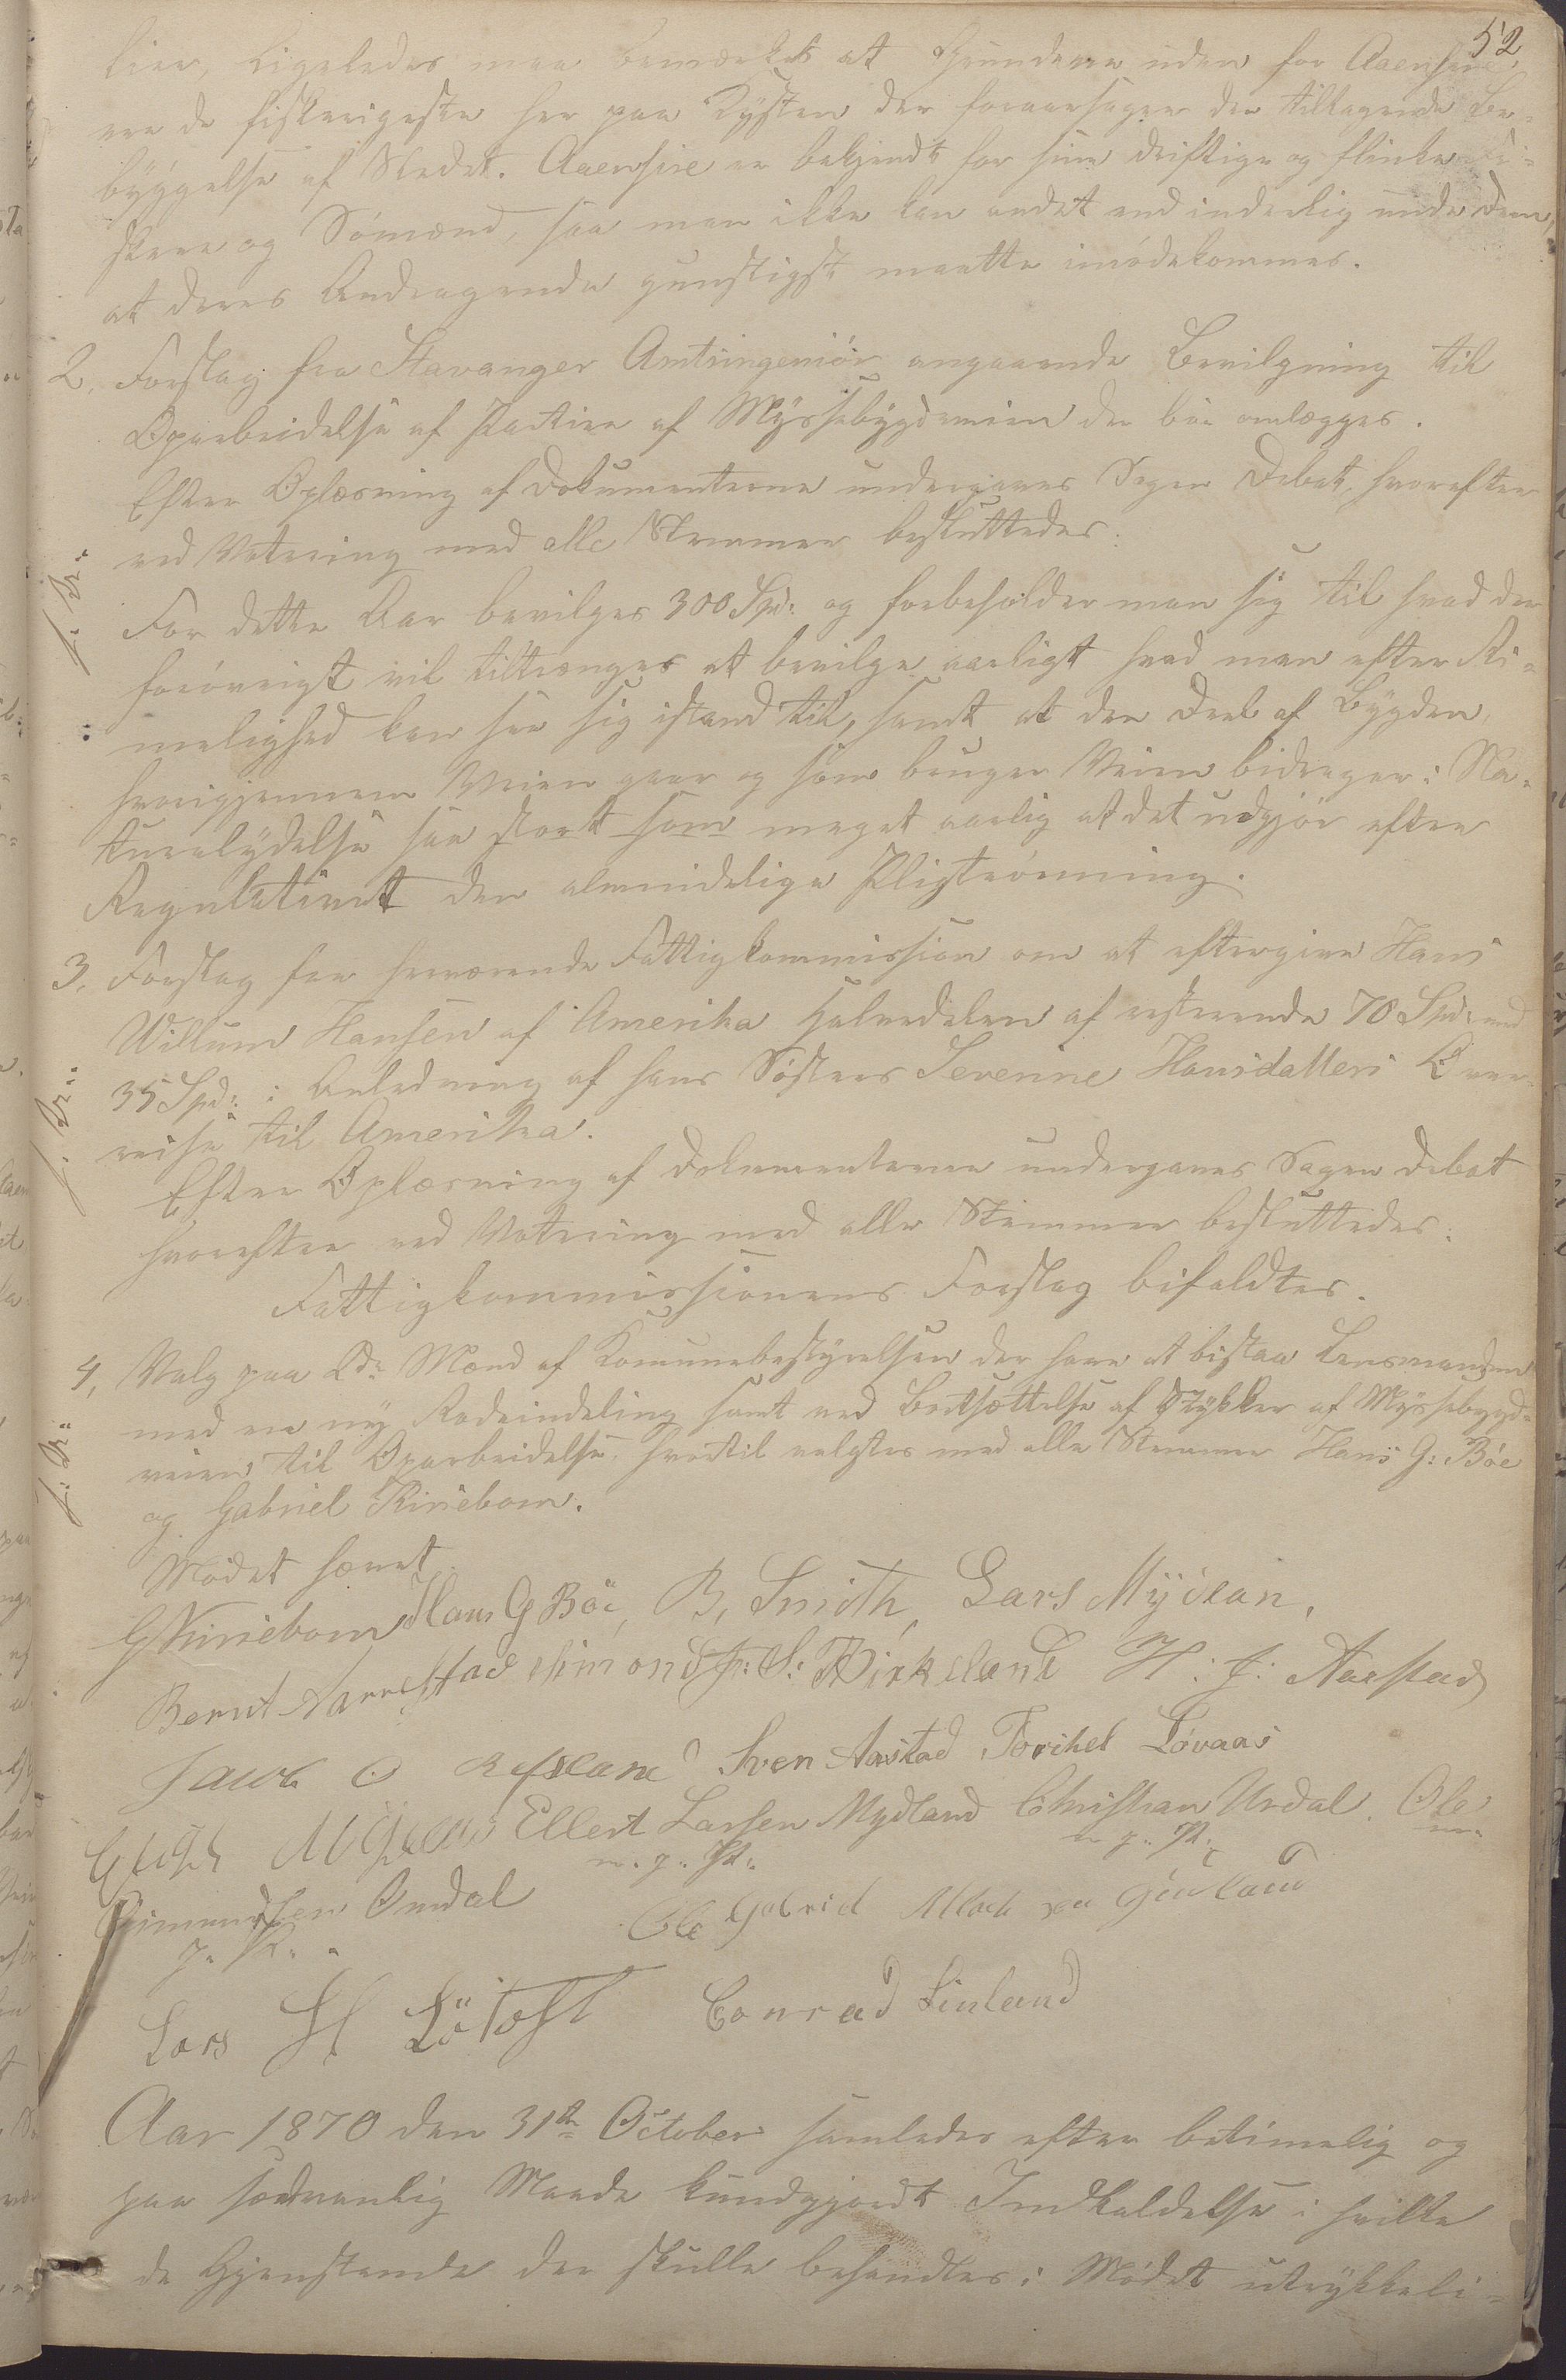 52
lien, Ligeledes maa bemærkes at Grundene uden for Aaensire
ere de fiskerigeste her paa Kysten der foraarsager den tiltagende Be-
byggelse af Stedet. Aaensire er bekjendt for sine driftige og flinke Fi-
skere og Sømænd, saa man ikke kan andet end inderlig unde dem,
at deres Andragende gunstigst maatte imødekommes.
2. Forslag fra Stavanger Amtsingeniør angaaende Bevilgning til
Oparbeidelse af Partier af Myssebygdveien der bør omlægges.
Efter Oplæsning af Dokumenterne undergaves Sagen Debat, hvorefter
ved Votering med alle Stemmer besluttedes:
For dette Aar bevilges 300 Spd: og forbeholder man sig til hvad der
forøvrigt vil tiltrænges at bevilge aarligt hvad man efter Ri-
melighed kan see sig istand til, samt at den Deel af Bygden,
hvorigjennem Veien gaar og som bruger Veien bidrager i Na-
turalydelse saa stort som meget aarlig at det udgjør efter
Regulativet den almindelige Pligtrørning.
3. Forslag fra herværende Fattigkommission om at eftergive Hans
Willum Hansen af Amerika Halvedelen af resterende 70 Spd: med
35 Spd: i Anledning af hans Søsters Severine Hansdatters Over-
reise til Amerika.
Efter Oplæsning af Dokumenterne undergaves Sagen Debat
hvorefter ved Votering med alle Stemmer besluttedes:
Fattigkommissionens Forslag bifaldtes.
4, Valg paa 2de Mænd af Komunebestyrelsen der have at bistaa Lensmanden
med en ny Rodeindeling samt ved Bortsættelse af Stykker af Myssebygd-
veien til Oparbeidelse. Hvortil valgtes med alle Stemmer Hans G: Bøe
og Gabriel Kirkebom.
Mødet hævet
G Kirkebom Hans G Bøe, B, Smith, Lars Mydlan,
Bernt Narrestad Simond Birkeland H: J: Aarstad
Jacob O Refsland Sven Aarstad Torchel Løvaas
Ellert Larsen Mydland Christian Urdal. Ole
m. p. P. m. p. P.
Simundsen Omdal Ole Gabriel
p. P.
Lars H Løtoft Conrad Linland
Aar 1870 den 31te October samledes efter betimelig og
paa sædvanlig Maade kundgjordt Indkaldelse i hvilke
de Gjenstande der skulle behandles i Mødet udtrykkeli-